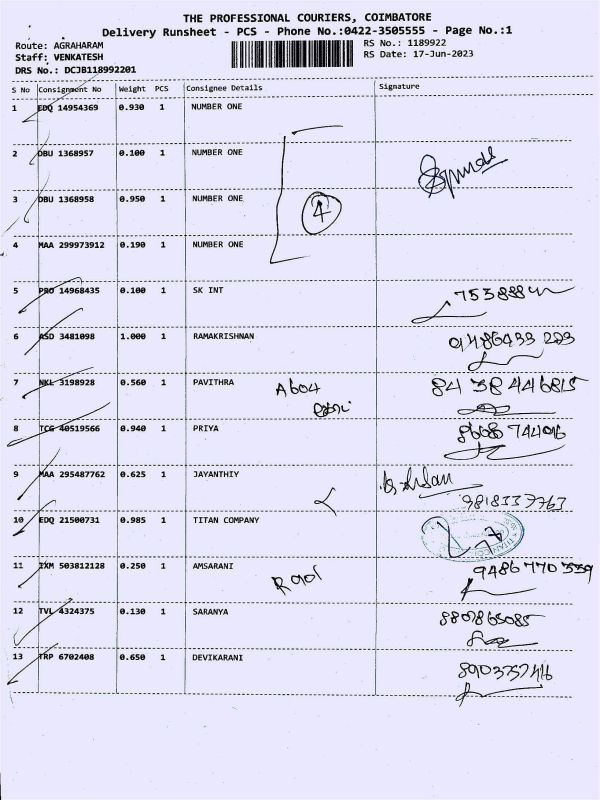 THE PROFESSIONAL COURIERS, COIMBATORE
Delivery Runsheet - PCS - Phone No.:0422-3505555 - Page No.:1
Route: AGRAHARAM RS No.: 1189922
Staff: VENKATESH RS Date: 17-Jun-2023
DRS No.: DCJB118992201
S No Consignment No Weight PCS Consignee Details Signature
1 EDQ 14954369 0.930 1 NUMBER ONE
2 DBU 1368957 0.100 1 NUMBER ONE
3 DBU 1368958 0.950 1 NUMBER ONE
4
4 MAA 299973912 0.190 1 NUMBER ONE
5 PRO 14968435 0.100 1 SK INT
6 ASD 3481098 1.000 1 RAMAKRISHNAN
7 NKL 3198928 0.560 1 PAVITHRA A604 84 38 446815
8 TCG 40519566 0.940 1 PRIYA 8668 744016
9 MAA 295487762 0.625 1 JAYANTHIY
9818337763
10 EDQ 21500731 0.985 1 TITAN COMPANY
11 IXM 503812128 0.250 1 AMSARANI 9486770339
12 TVL 4324375 0.130 1 SARANYA
13 TRP 6702408 0.650 1 DEVIKARANI 8903757416